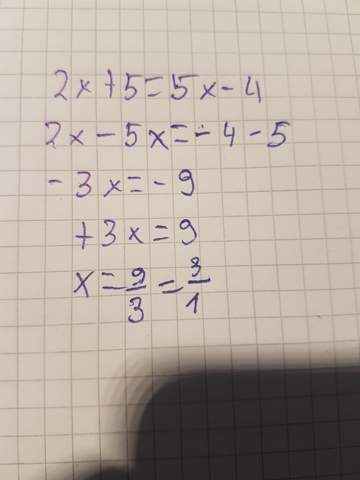 2x+5=5x-4
2x-5x=-4-5
-3x=-9
+3x=9
x=9/3=3/1